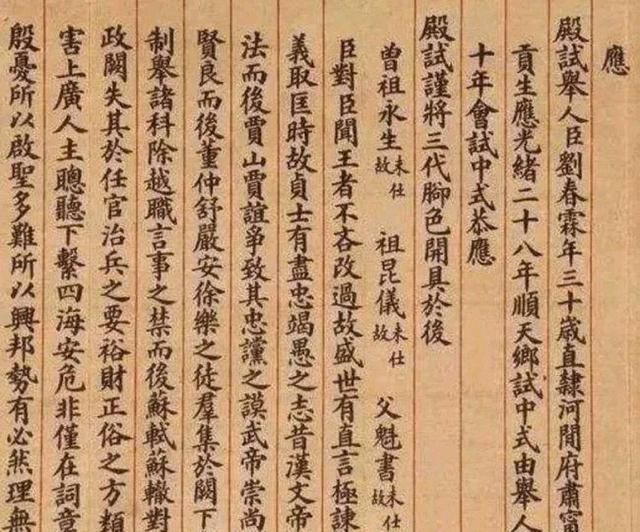 應
殿試舉人臣劉春霖年三十歲直隸河間府肅寧
貢生應光緒二十八年順天鄉試中式由舉人
十年會試中式恭應
殿試謹將三代腳色開具於後
曾祖永生未仕故 祖昆儀未仕故 父魁書未仕故
臣對臣聞王者不吝改過故盛世有直言極諫
義取匡時故貞士有盡忠竭愚之志昔漢文帝
法而後賈山賈誼爭致其忠讜之謨武帝崇尚
賢良而後董仲舒嚴安徐樂之徒羣集於闕下
制舉諸科除越職言事之禁而後蘇軾蘇轍對
政闕失其於任官治兵之要裕財正俗之方類
害上廣人主聰聽下繫四海安危非僅在詞章
殷憂所以啟聖多難所以興邦勢有必然理無